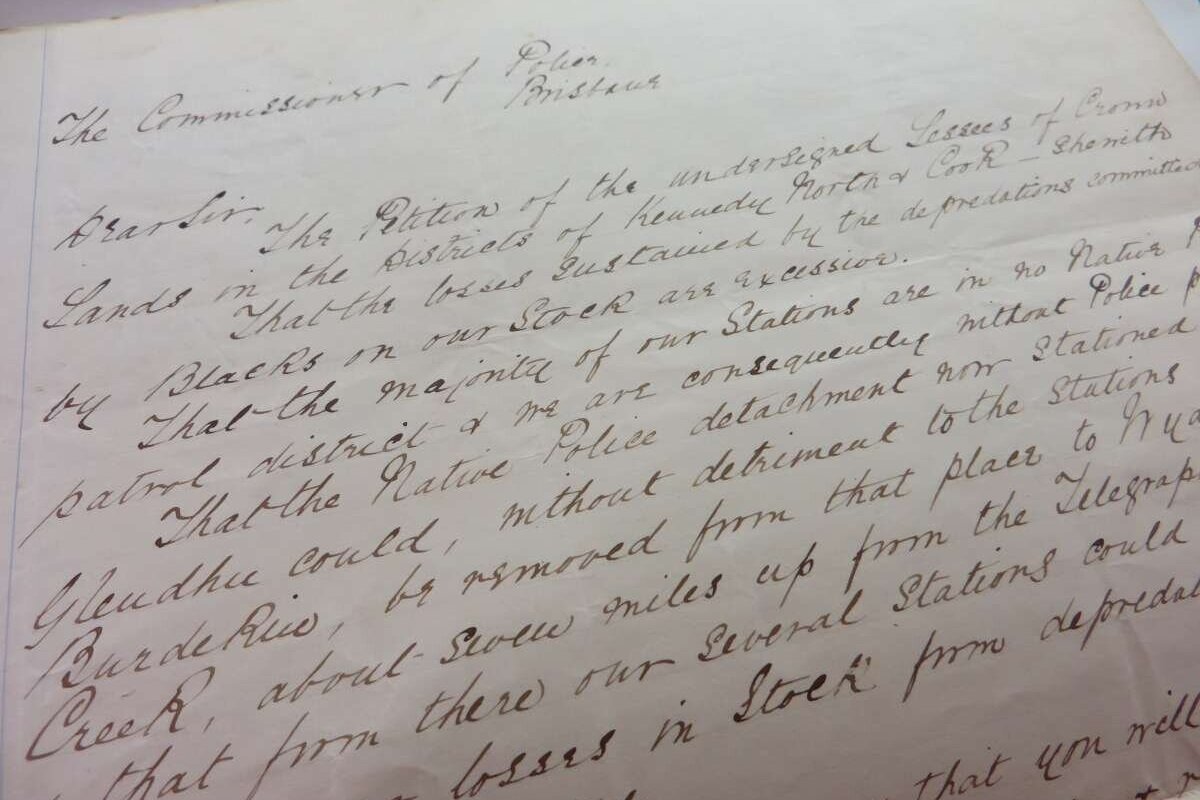 The Commissioner of Police.
Brisbane
Dear Sir,
The Petition of the undersigned Lessees of Crown
Lands in the Districts of Kennedy North & Cook - Sheweth
That the losses sustained by the depredations committed
by Blacks on our Stock are excessive.
That the majority of our Stations are in no Native
patrol district & we are consequently without Police
That the Native Police detachment now stationed
Glendhu could, without detriment to the Stations
Burdekin, be removed from that place to
Creek, about seven miles up from the Telegrap
that from there our several Stations could
losses in Stock from depreda
that you will